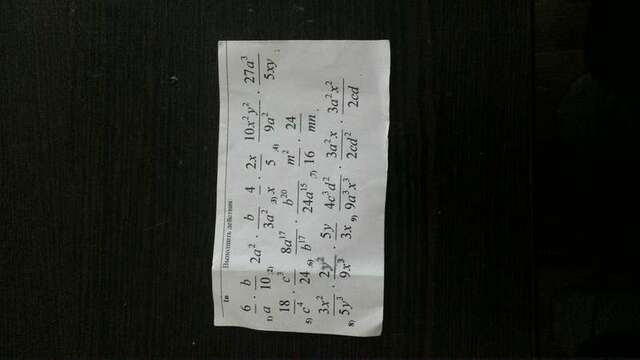 1в
Выполнить действия
1) 6/a · b/10 ;2) 2a² · b/3a² ;3) 4/x · 2x/5 ;4) 10x²y²/9a² · 27a³/5xy ;
5) 18/c⁴ · c³/24 ;6) 8a¹⁷/b¹⁷ · b²⁰/24a¹⁵ ;7) m²/16 · 24/mn .
8) 3x²/5y³ · 2y²/9x³ · 5y/3x ;9) 4c³d²/9a³x³ · 3a²x/2cd² · 3a²x²/2cd